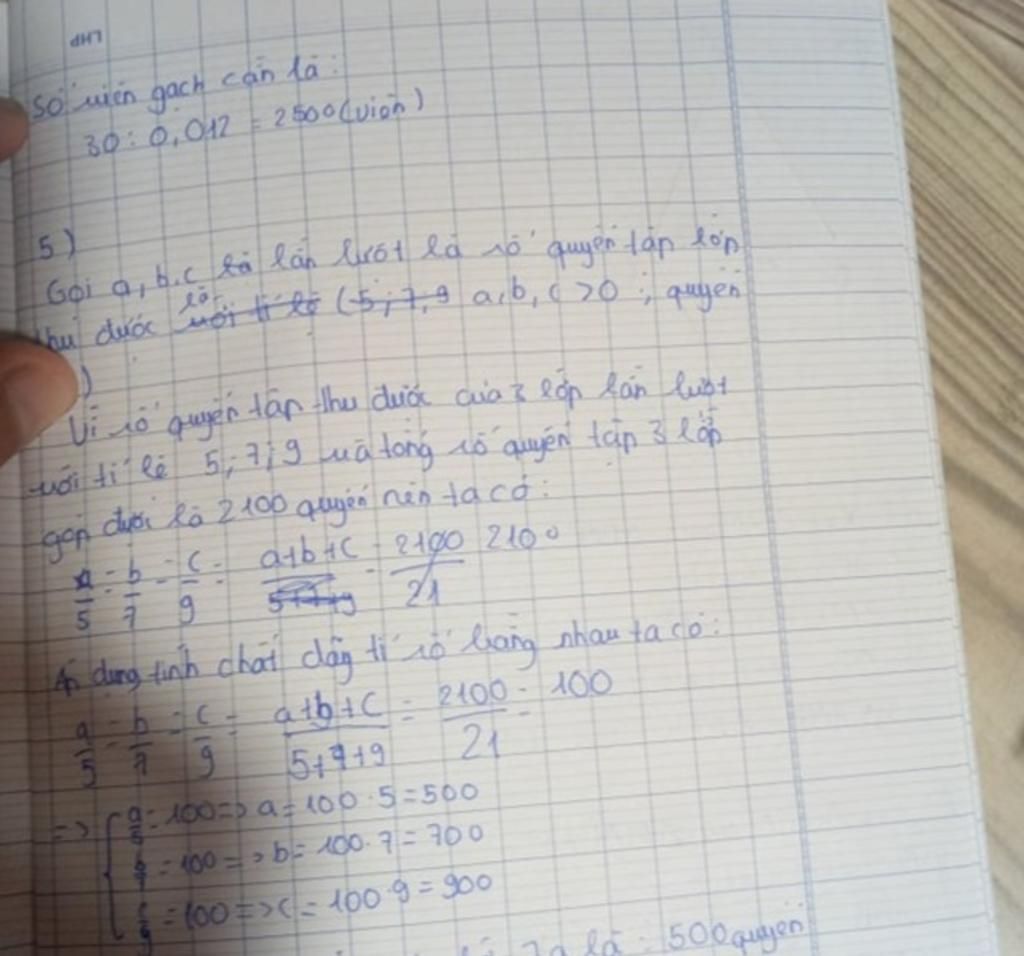 LHP
Số viên gạch cần là:
30 : 0,012 = 2500 (viên)
5)
Gọi a, b, c là lần lượt là số quyển tập lớp
thu được với tỉ lệ là (5; 7; 9 a, b, c > 0; quyển
)
Vì số quyển tập thu được của 3 lớp lần lượt
với tỉ lệ 5; 7; 9 và tổng số quyển tập 3 lớp
góp được là 2100 quyển nên ta có:
a/5 = b/7 = c/9 = a+b+c/5+7+9 = 2100/21 2100
Áp dụng tính chất dãy tỉ số bằng nhau ta có:
a/5 = b/7 = c/9 = a+b+c/5+7+9 = 2100/21 = 100
=> { a/5 = 100 => a = 100 . 5 = 500
b/7 = 100 => b = 100 . 7 = 700
c/9 = 100 => c = 100 . 9 = 900
là : 500 quyển